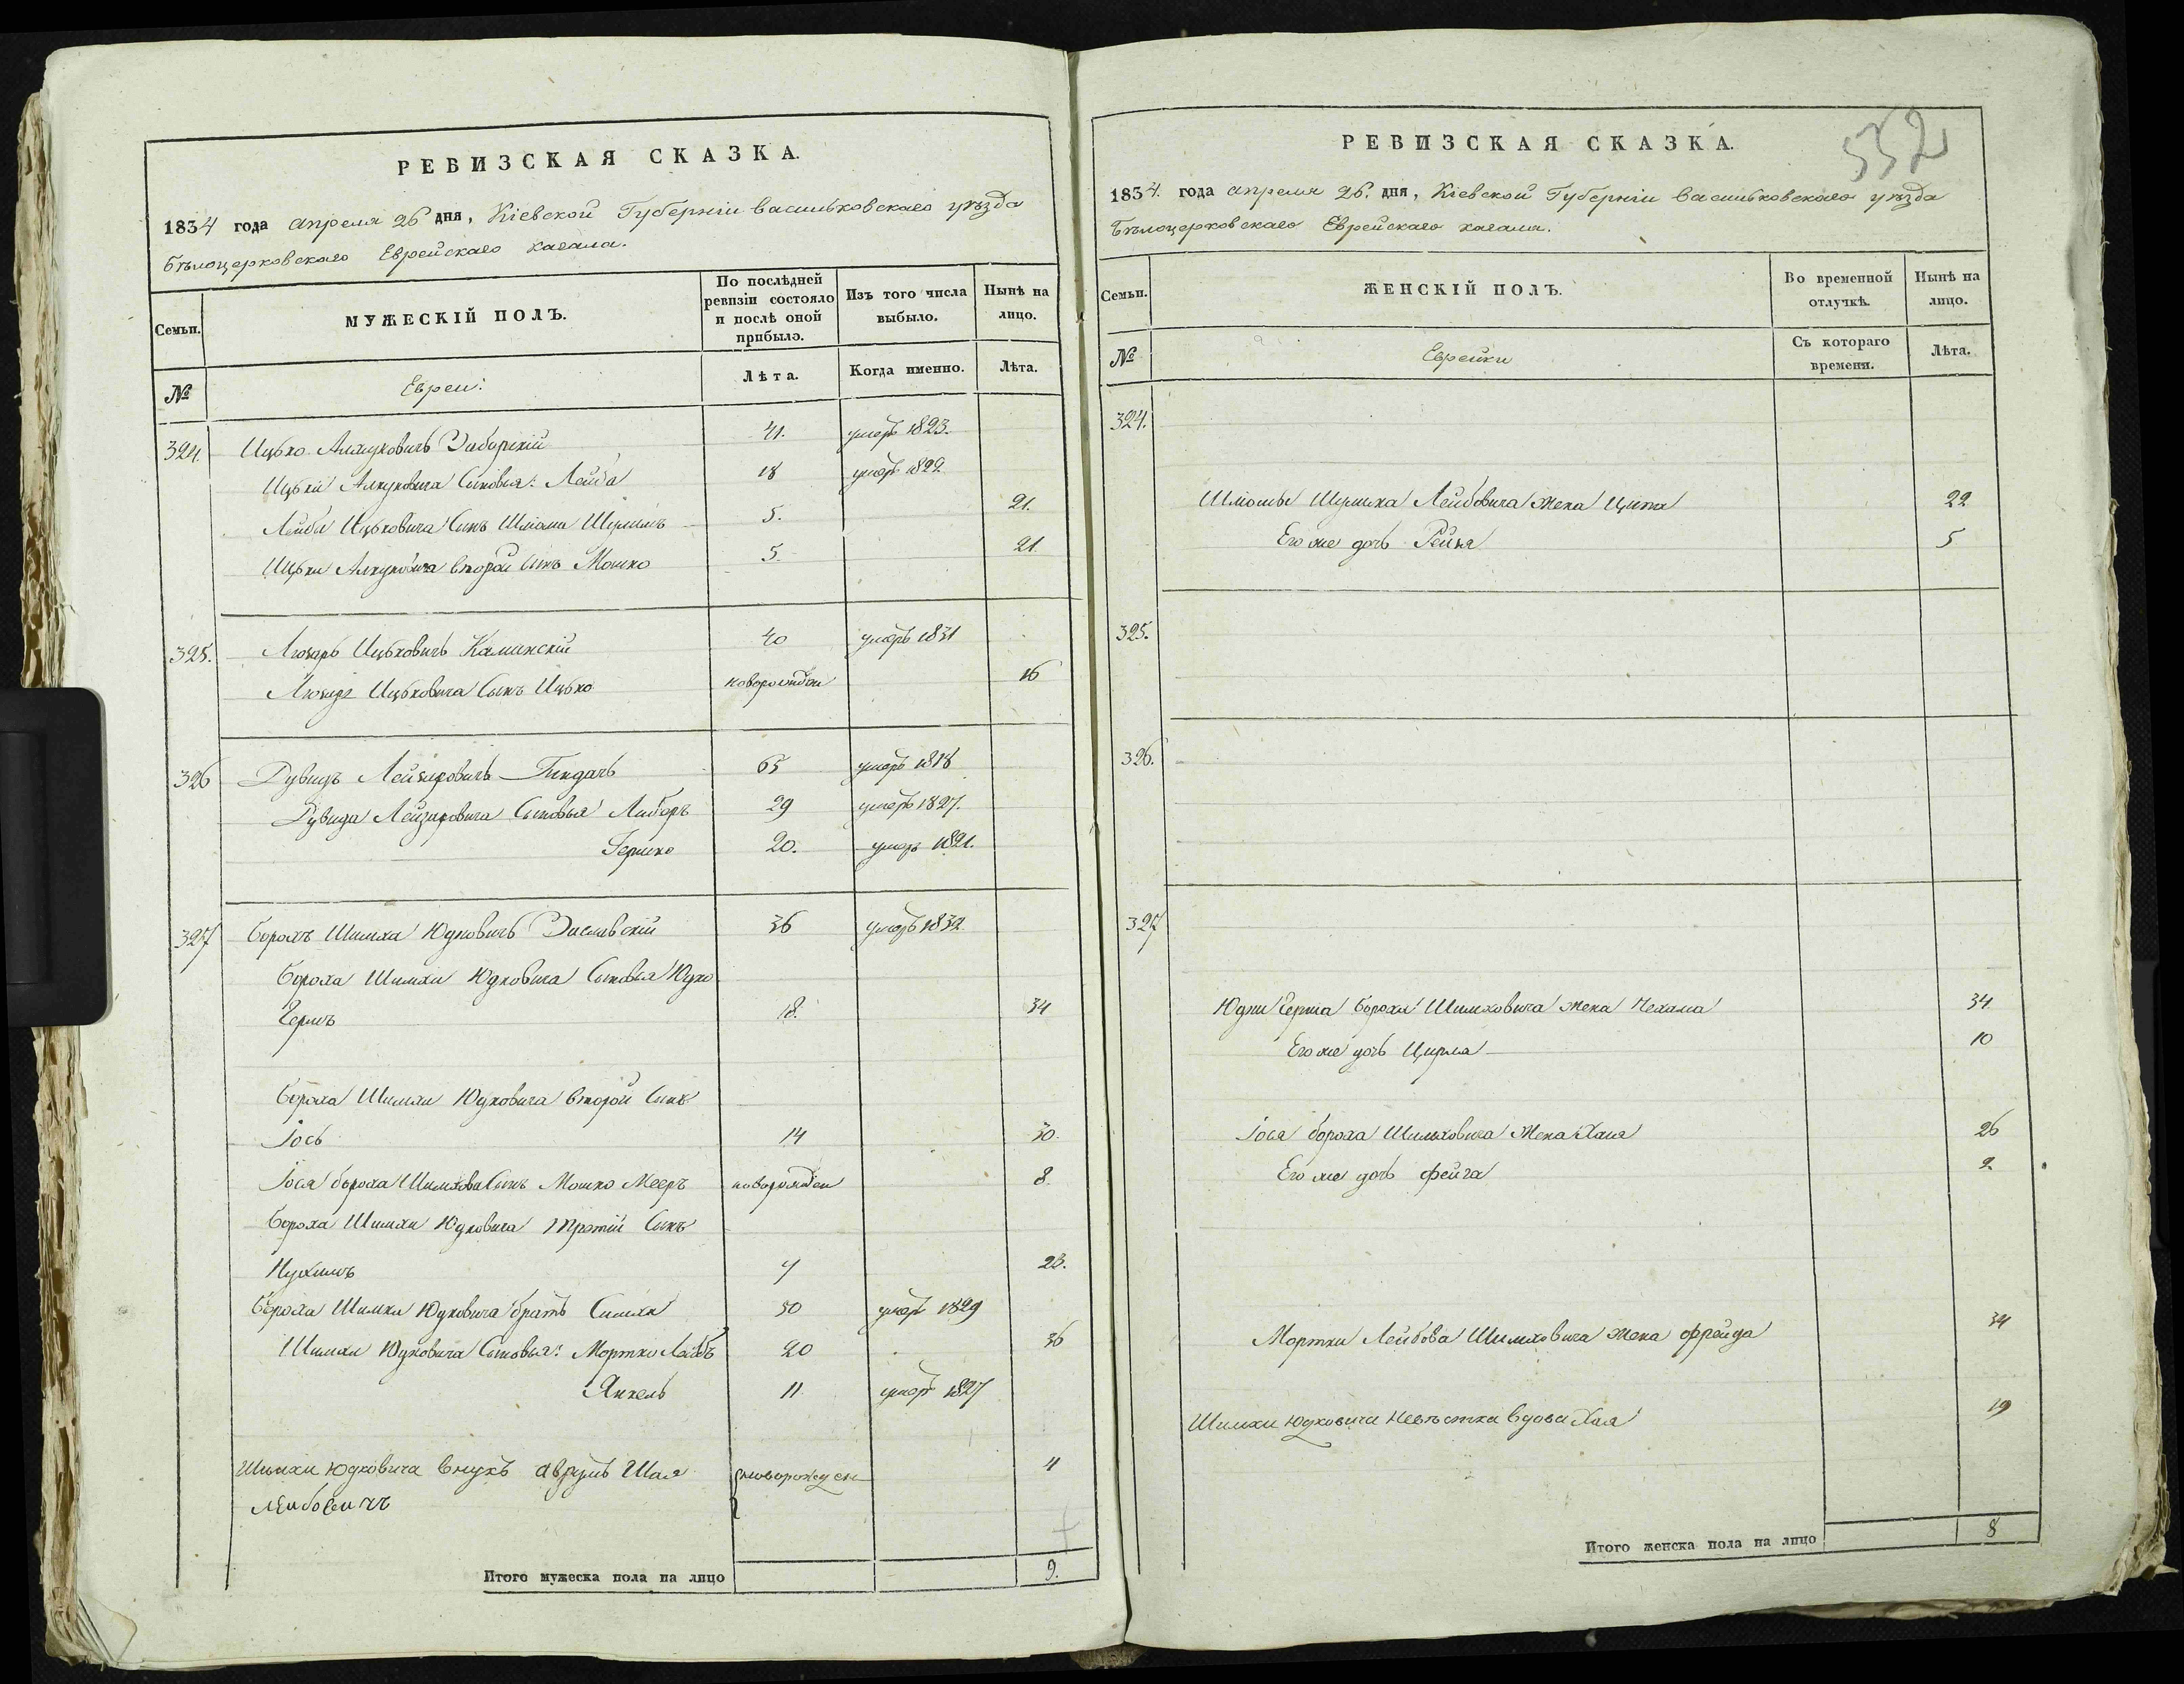 РЕВИЗСКАЯ СКАЗКА.
1834 года апреля 26 дня, Кіевской Губерніи васильковскаго уѣзда
бѣлоцерковскаго Еврейскаго кагала.
Семьи.
МУЖЕСКІЙ ПОЛЪ.
По послѣдней ревизіи состояло и послѣ оной прибыло.
Изъ того числа выбыло.
Нынѣ на лицо.
№
Евреи:
Лѣта.
Когда именно.
Лѣта.
324. Ицько Заборскій 41. умеръ 1823.
Ицьки Сыновья: Лейба 18 умеръ 1822
Лейбы Ицьковича Сынъ Шліома Шулимъ 5. 21.
Ицьки второй сынъ Мошко 5. 21.
325. Лейзаръ Ицьковичъ Каминскій 40 умеръ 1831
Ицьковича Сынъ Ицько новорожден 16
326 Дувидъ Лейзировичъ 65 умеръ 1818
Дувида Лейзировича Сыновья Либеръ 29 умеръ 1827.
Гершко 20. умеръ 1821.
327 борохъ Шимха Юдковичъ Заславскій 36 умеръ 1832
бороха Шимхи Юдковича Сыновья Юдко
Гершъ 18. 34
бороха Шимхи Юдковича второй Сынъ
Іось 14 30.
Іося бороха Шимхова Сынъ Мошко Мееръ новорожден 8.
бороха Шимхи Юдковича третій Сынъ
Нухимъ 7 23.
бороха Шимхи Юдковича братъ Симха 50 умеръ 1829
Шимхи Юдковича Сыновья: Мортко Лейбъ 20 36
Янкель 11 умеръ 1827
Шимхи Юдковича внукъ аврумъ Шая новорожден 4
лейбовичъ
Итого мужеска пола на лицо 9.
532
РЕВИЗСКАЯ СКАЗКА.
1834. года апреля 26. дня, Кіевской Губерніи васильковскаго уѣзда
Бѣлоцерковскаго Еврейскаго кагала.
Семьи.
ЖЕНСКІЙ ПОЛЪ.
Во временной отлучкѣ.
Нынѣ на лицо.
№
Еврейки
Съ котораго времени.
Лѣта.
324.
Шліомы Шулима Лейбовича жена 22
Его же дочь Рейза 5
325.
326.
327
Юдки Герша борохи Шимховича жена Нехама 34
Его же дочь Цирла 10
Іося бороха Шимховича жена Хая 26
Его же дочь фейга 2
Мортки Лейбова Шимховича жена фрейда 34
Шимхи юдковича невѣстка вдова Хая 19
Итого женска пола на лицо 8